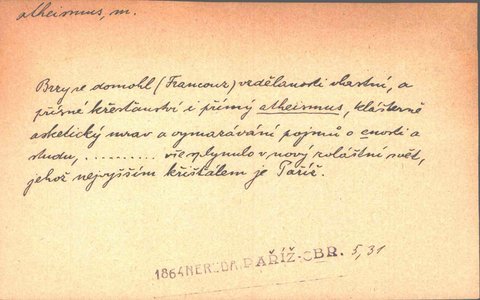 atheismus, m.
Brzy se domohl (Francouz) vzdělanosti vlastní, a
přísné křesťanství i přímý atheismus, klášterně
asketický mrav a vymazávání pojmů o cnosti a
studu, .......... vše splynulo v nový zvláštní svět,
jehož nejvyšším křišťálem je Paříž.
1864 NERUDA, PAŘÍŽ-OBR. 5, 31